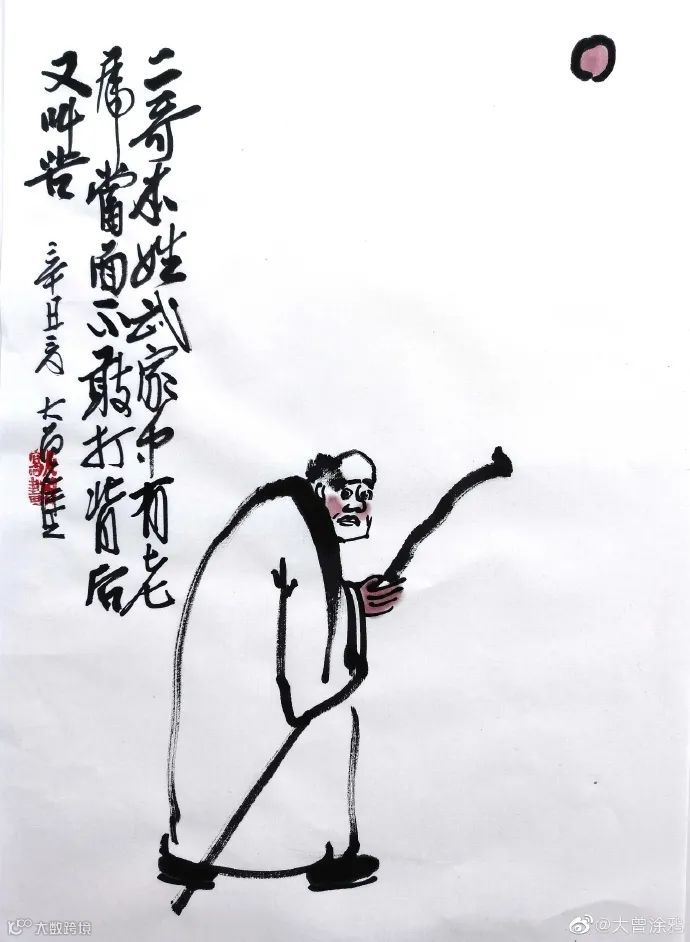 二哥本姓武家中有老
虎當面不敢打背后
又叫苦
辛丑 大
大数跨境
@大曾涂鸦